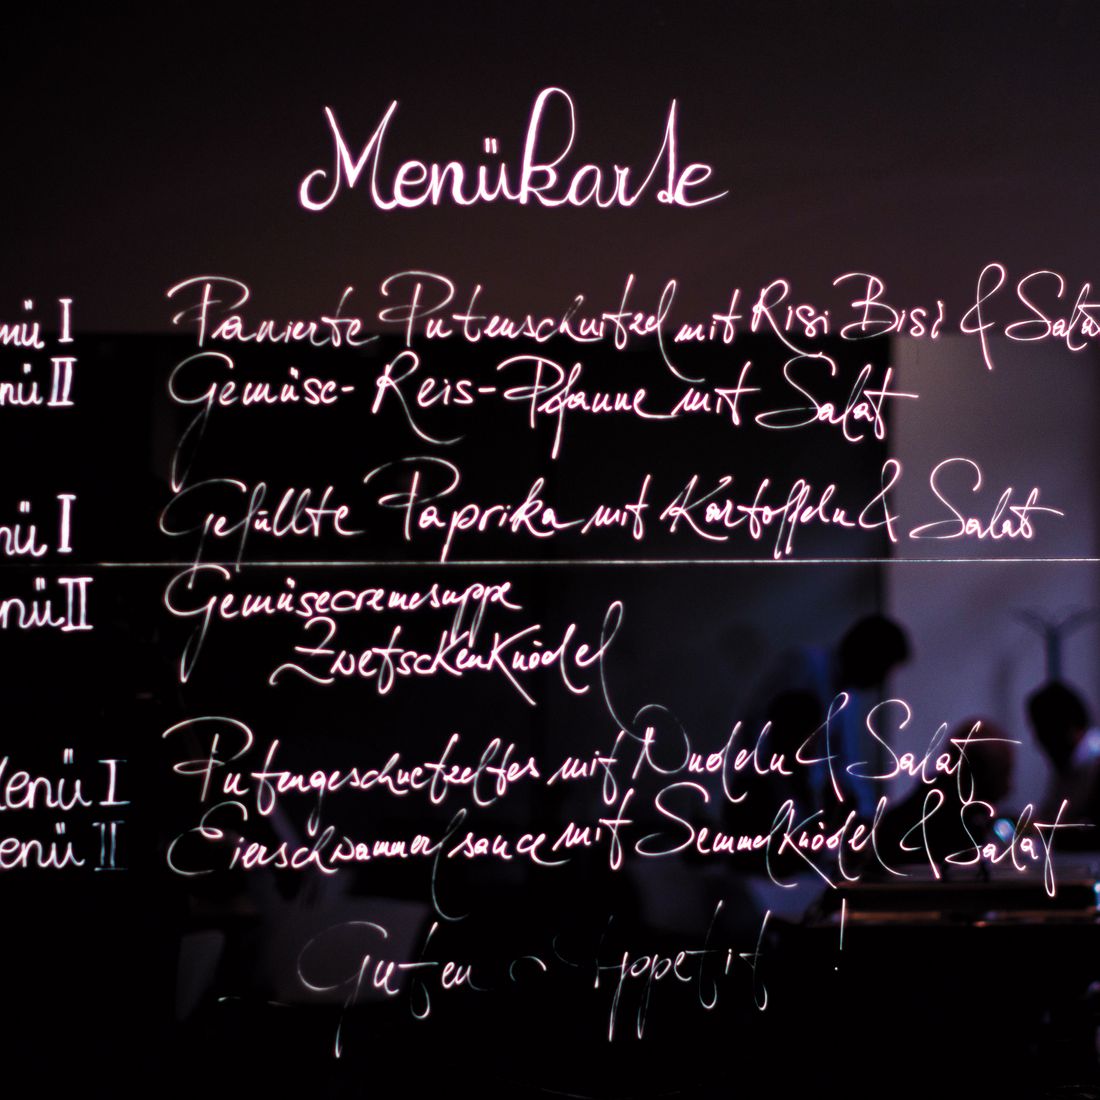 Menükarte
nü I Panierte Putenschnitzel mit Risi Bisi & Salat
nü II Gemüse-Reis-Pfanne mit Salat
nü I Gefüllte Paprika mit Kartoffeln & Salat
nü II Gemüsecremesuppe
Zwetschkenknödel
Menü I Putengeschnetzeltes mit Nudeln & Salat
enü II Eierschwammerlsauce mit Semmelknödel & Salat
Guten Appetit !